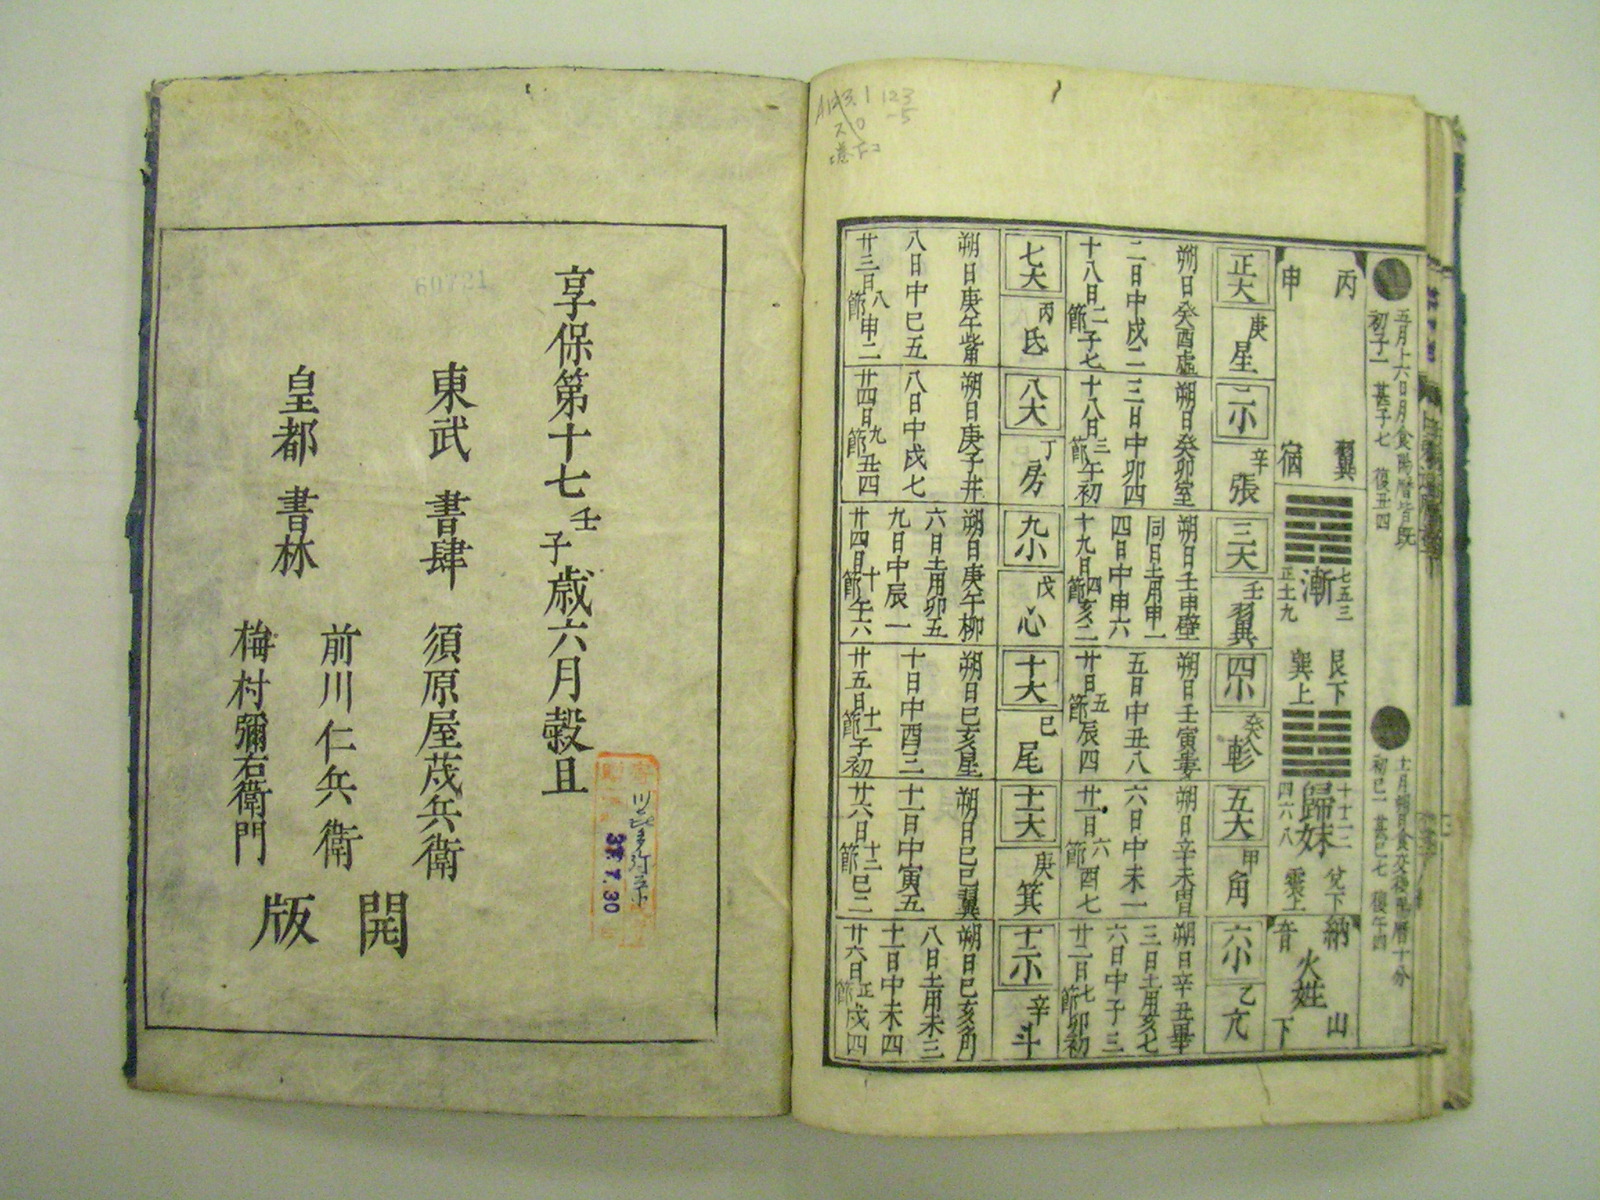 123
-5
丙申
翼宿
七五三
漸
正土九
艮下
巽上
十十二
歸妹
四六八
兌下
震上
納音
山下
火姓
五月上六日月食陽暦皆既
初子一 甚子七 復丑四
正大
庚
星
朔日癸酉虛
二日中戌二
十八日二節子七
二小
辛
張
朔日癸卯室
三日中卯四
十八日三節午初
三大
壬
翼
朔日壬申壁
同日土用申一
四日中申六
十九日四節亥二
四小
癸
軫
朔日壬寅婁
五日中丑八
廿日五節辰四
五大
甲
角
朔日辛未胃
六日中未一
廿一日六節酉七
六小
乙
亢
朔日辛丑畢
三日土用亥七
六日中子三
廿二日七節卯初
七大
丙
氐
朔日庚午觜
八日中巳五
廿三日八節申二
八大
丁
房
朔日庚子井
八日中戌七
廿四日九節丑四
九小
戊
心
朔日庚午柳
六日土用卯五
九日中辰一
廿四日十節午六
十大
己
尾
朔日己亥星
十日中酉三
廿五日十一節子初
十一大
庚
箕
朔日己巳翼
十一日中寅五
廿六日十二節巳二
十二小
辛
斗
朔日己亥角
八日土用未三
十一日中未四
廿六日正節戌四
享保第十七壬子歳六月穀且
東武 書肆 須原屋茂兵衛
皇都 書林 前川仁兵衛
梅村彌右衛門
開版
60721
37.7.30